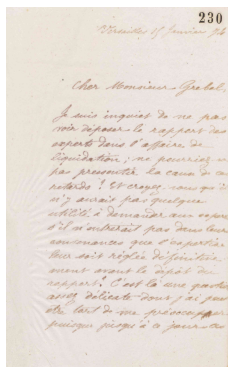 230
Versailles 15 Janvier 94
Cher Monsieur
Je suis inquiet de ne pas
voir déposer le rapport des
experts dans l'affaire de
liquidation; ne pourriez-
pas pressentir la cause de ce
retard? Et croyez-vous qu'il
n'y aurait pas quelque
utilité à demander aux
s'il n'entrerait pas dans leurs
convenances que
leur soit réglée définitive
ment avant le dépôt du
rapport? C'est là une question
assez délicate dont j'ai
être tort de me préoccuper
puisque jusqu'à ce jour